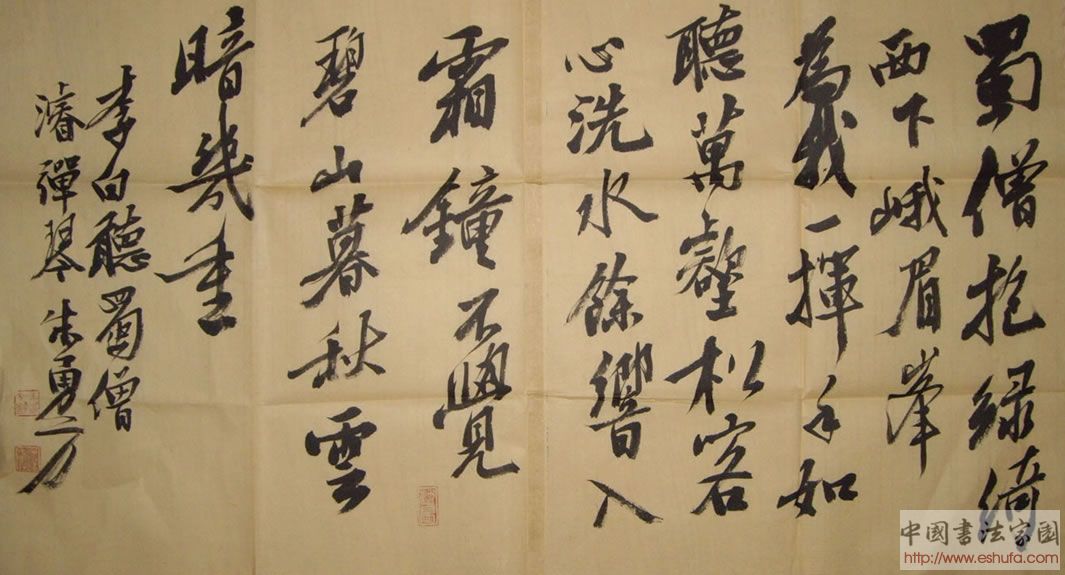 蜀僧抱綠綺
西下峨眉峯
為我一揮手如
聽萬壑松客
心洗水餘響入
霜鐘不覺
碧山暮秋雲
暗幾重
李白聽蜀僧
濬彈琴 朱勇方
中國書法家園
http://www.eshufa.com